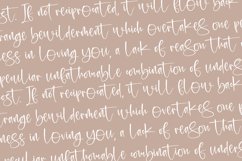 st. If not reciprocated, it will flow bak
range bewilderment which overtakes one p
ness in loving you, a lack of reason that
peculiar unfathomable combination of unders
est. If not reciprocated, it will flow bak
range bewilderment which overtakes one p
ness in loving you, a lack of reason that
peculiar unfathomable combination of unders